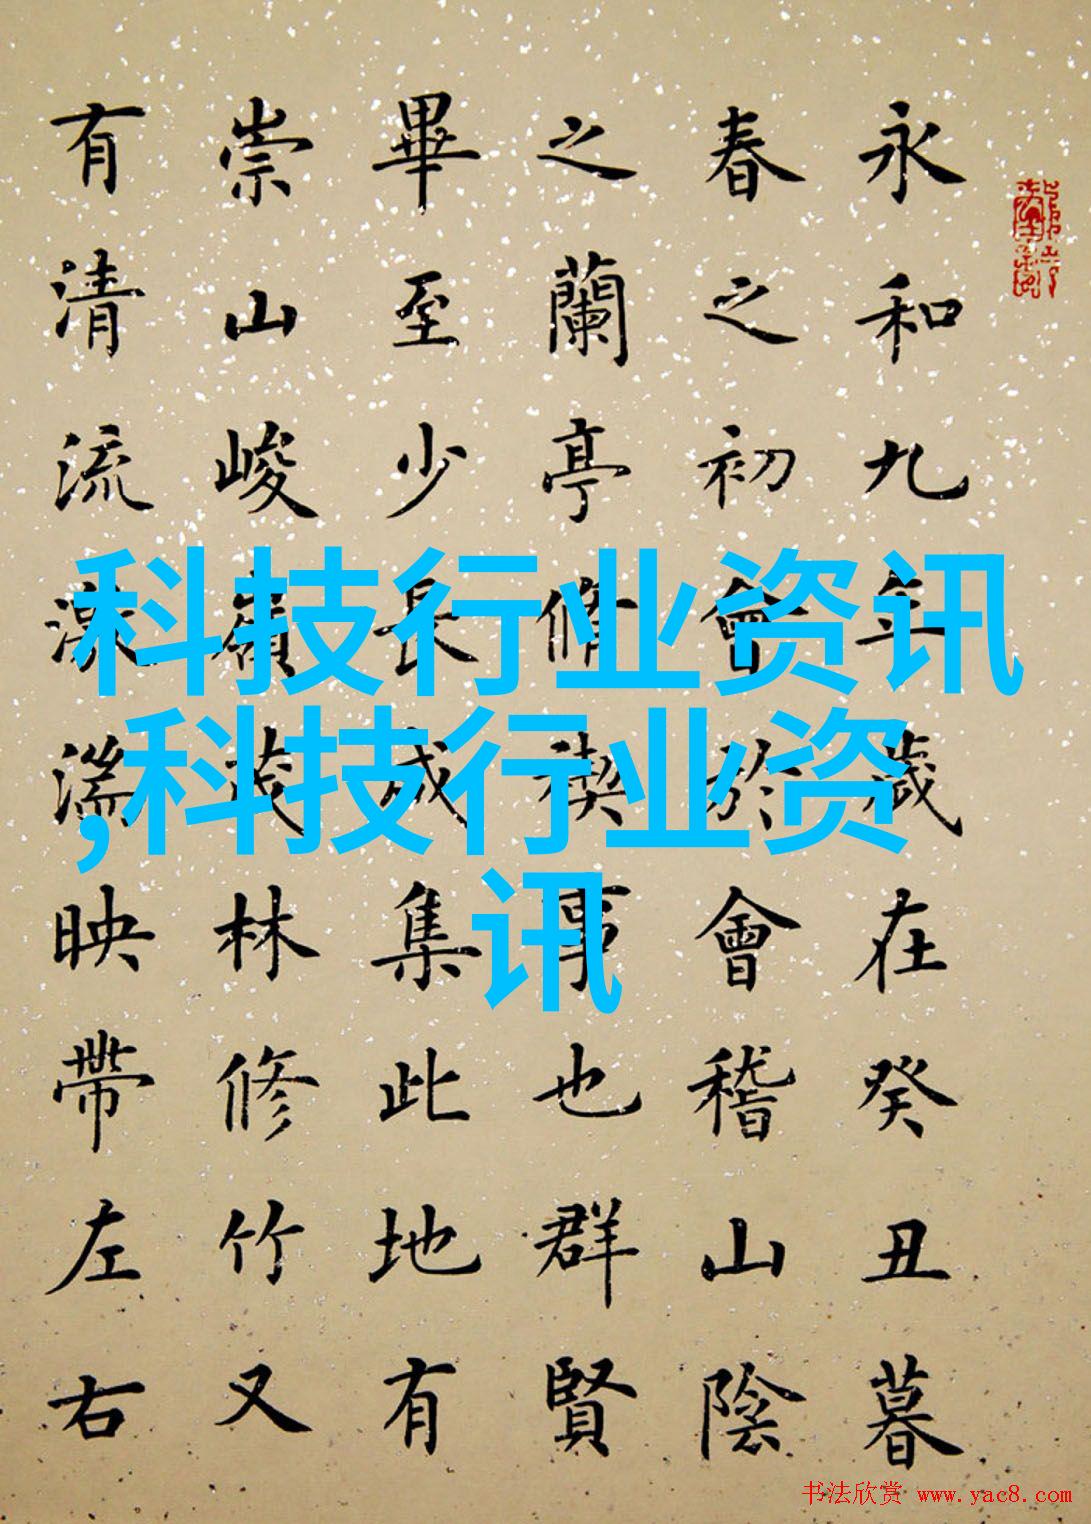 永和九年歲在癸丑暮
春之初會於會稽山陰
之蘭亭脩禊事也群賢
畢至少長咸集此地有
崇山峻嶺茂林修竹又
有清流激湍映帶左右
科技行业资讯
,科技行业资
讯
书法欣赏 www.yac8.com